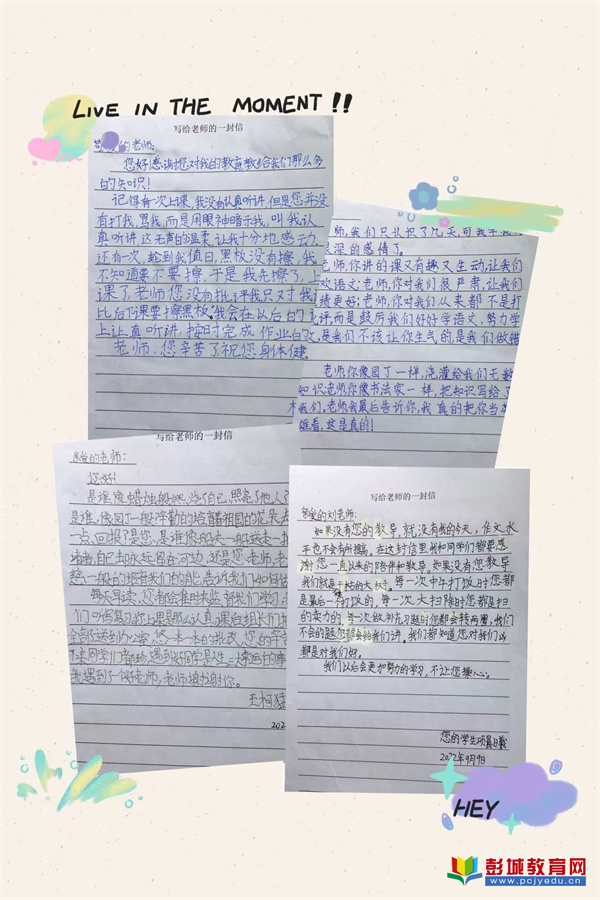 LIVE IN THE MOMENT!!
写给老师的一封信
的老师:
您好!感谢您对我的教育教给我们那么多
的知识!
记得有一次上课,我没有认真听讲,但是您并没
有打我,骂我而是用眼神暗示我,叫我认
真听讲这无声的温柔让我十分地感动
还有一次,轮到我值日,黑板没有擦,我
不知道要不要擦,于是我先擦了,上
课了,老师您没有批评我只对我
比后下课要擦黑板,我会在以后的
上认真听讲,按时完成作业的
老师,您辛苦了祝您身体健
师,我们只认识了几天,可我
深的感情了。
老师,你讲的课又有趣又生动,让我们
欢语文;老师,你对我们很严肃,让我们
绩更好;老师,你对我们从来都不是打
评而是鼓厉我们好好学语文,努力学
是我们不该让你生气的,是我们做错
老师你像园丁一样,浇灌给我们无数
知识老师你像书法家一样,把知识写给了
我们。老师我最后告诉你,我真的把你当
着,这是真的!
写给老师的一封信
爱的老师:
您好!
是谁像蜡烛般燃烧了自己,照亮了他人
是谁,像园丁一般辛勤的培育着祖国的花朵
一点回报了是您,是谁像船夫一般送走一批
者,自己却永远留在河边,还是您,老师,老
我遇到了一位好老师,老师谢谢你。
写给老师的一封信
敬爱的刘老师:
如果没有您的教导,就没有我的今天,作文水
平也不会有所提高。在这封信里我和同学们都要感
谢您一直以来的陪伴和教导。如果没有您教导
我们就是干枯的大树。每一次中午打饭时您都
是最后一个打饭的,每一次大扫除时您都是扫
的卖力的,每一次做补充习题时您都会转两圈,我们
不会的题您都会给我们讲。我们都知道您对我们
都是对我们好。
我们以后会更加努力的学习,不让您操心。
您的学生项
2022年9月9日
HEY
彭城教育网
www.pcjyedu.cn